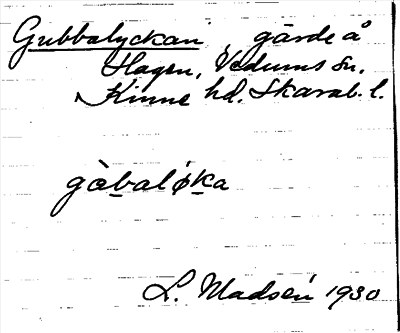 Gubbalyckan gärde å
Hagen, Vedums sn,
Kinne hd. Skarab. l.
gòbaløka
L. Madsén 1930